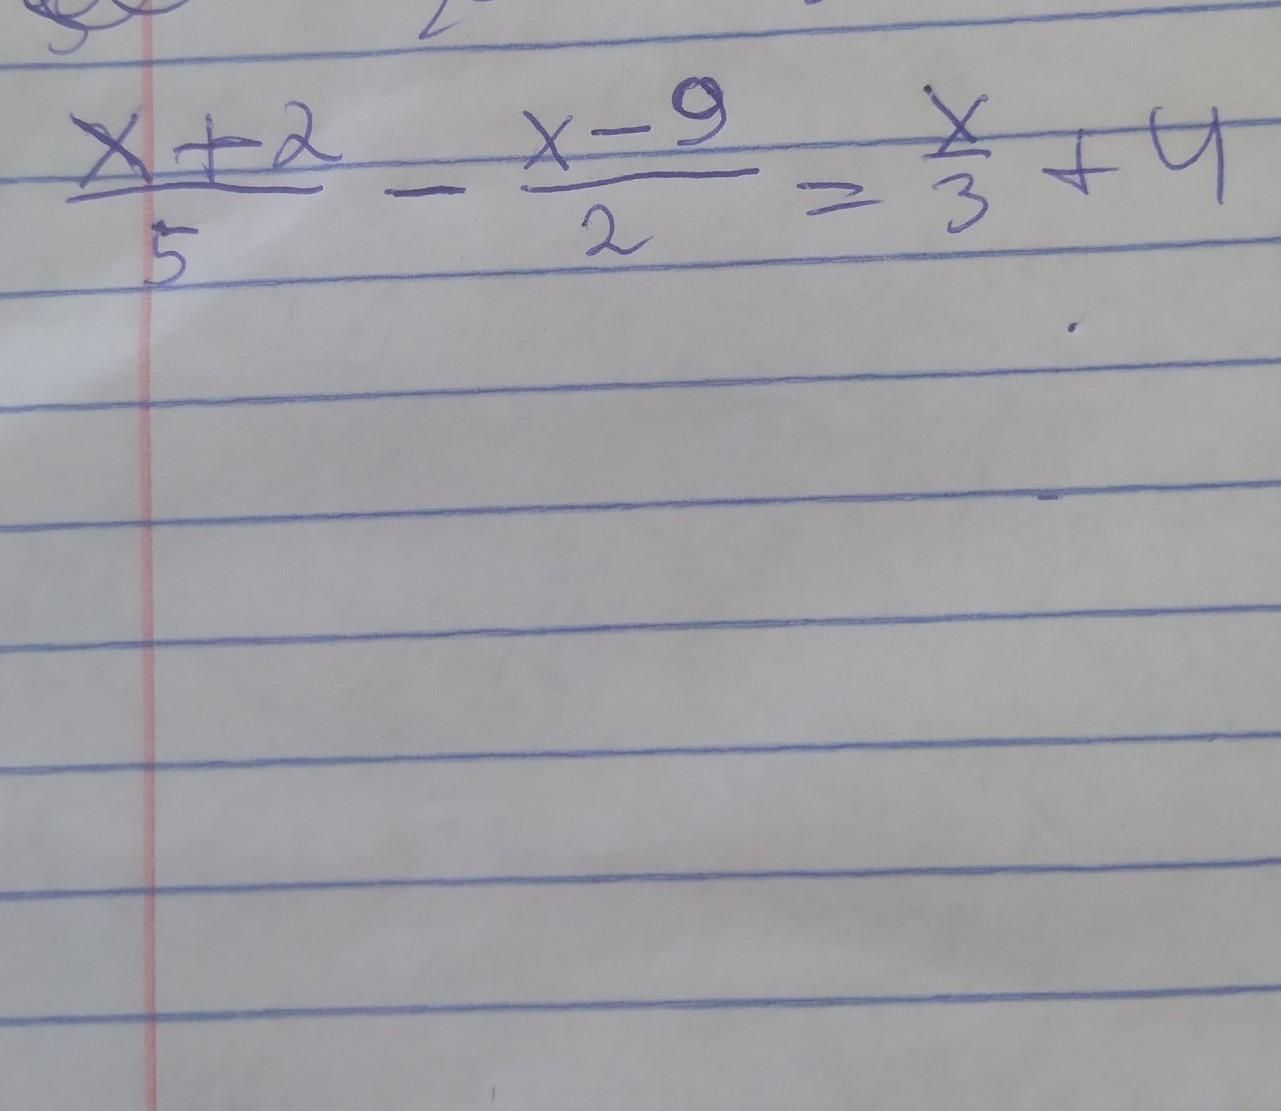 x+2/5 - x-9/2 = x/3 + 4